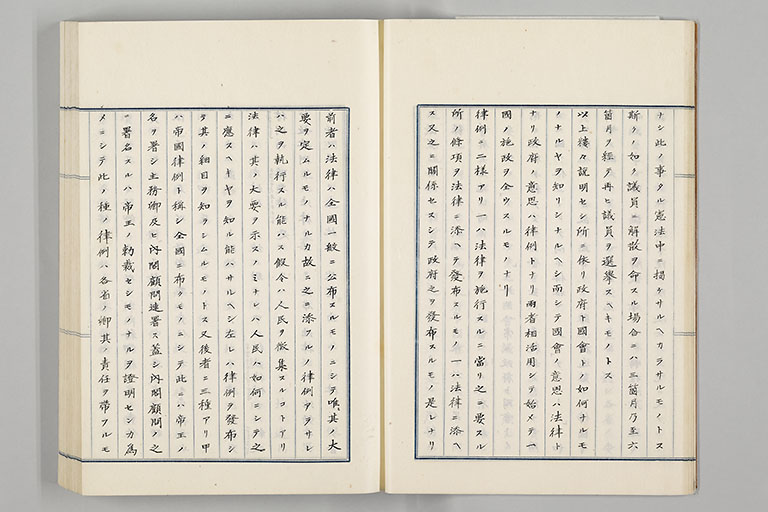 ナシ此ノ事タル憲法中ニ掲ケサルヘカラサルモノトス
斯クノ如ク議員ニ解散ヲ命スル場合ニハ三箇月乃至六
箇月ヲ経テ再ヒ議員ヲ選挙スヘキモノトス
以上縷々説明セシ所ニ依リ政府ト國會トノ如何ナルモ
ノナルヤヲ知リシナルヘシ而シテ國會ノ意思ハ法律ト
ナリ政府ノ意思ハ律例トナリ両者相活用シテ始メテ一
國ノ施政ヲ全ウスルモノナリ
律例ニ二様アリ一ハ法律ヲ施行スルニ當リ之ニ要スル
所ノ條項ヲ法律ニ添ヘテ發布スルモノ一ハ法律ニ添ヘ
ス又之ニ関係セスシテ政府之ヲ發布スルモノ是レナリ
前者ハ法律ハ全國一般ニ公布スルモノニシテ唯其ノ大
要ヲ定ムルモノナルカ故ニ之ニ添フルノ律例アラサレ
ハ之ヲ執行スル能ハス假令ハ人民ヲ徴集スルコトアリ
法律ハ其ノ大要ヲ示スノミナレハ人民ハ如何ニシテ之
ニ應スヘキヤヲ知ル能ハサルヘシ左レハ律例ヲ發布シ
テ其ノ細目ヲ知ラシムルモノトス又後者ニ三種アリ甲
ハ帝國律例ト稱シ全國ニ布クモノニシテ此ニハ帝王ノ
名ヲ署シ主務卿及ヒ内閣顧問連署ス蓋シ内閣顧問ノ之
ニ署名スルハ帝王ノ勅裁セシモノナルヲ證明センカ為
メニシテ此ノ種ノ律例ハ各省ノ卿其ノ責任ヲ帯フルモ